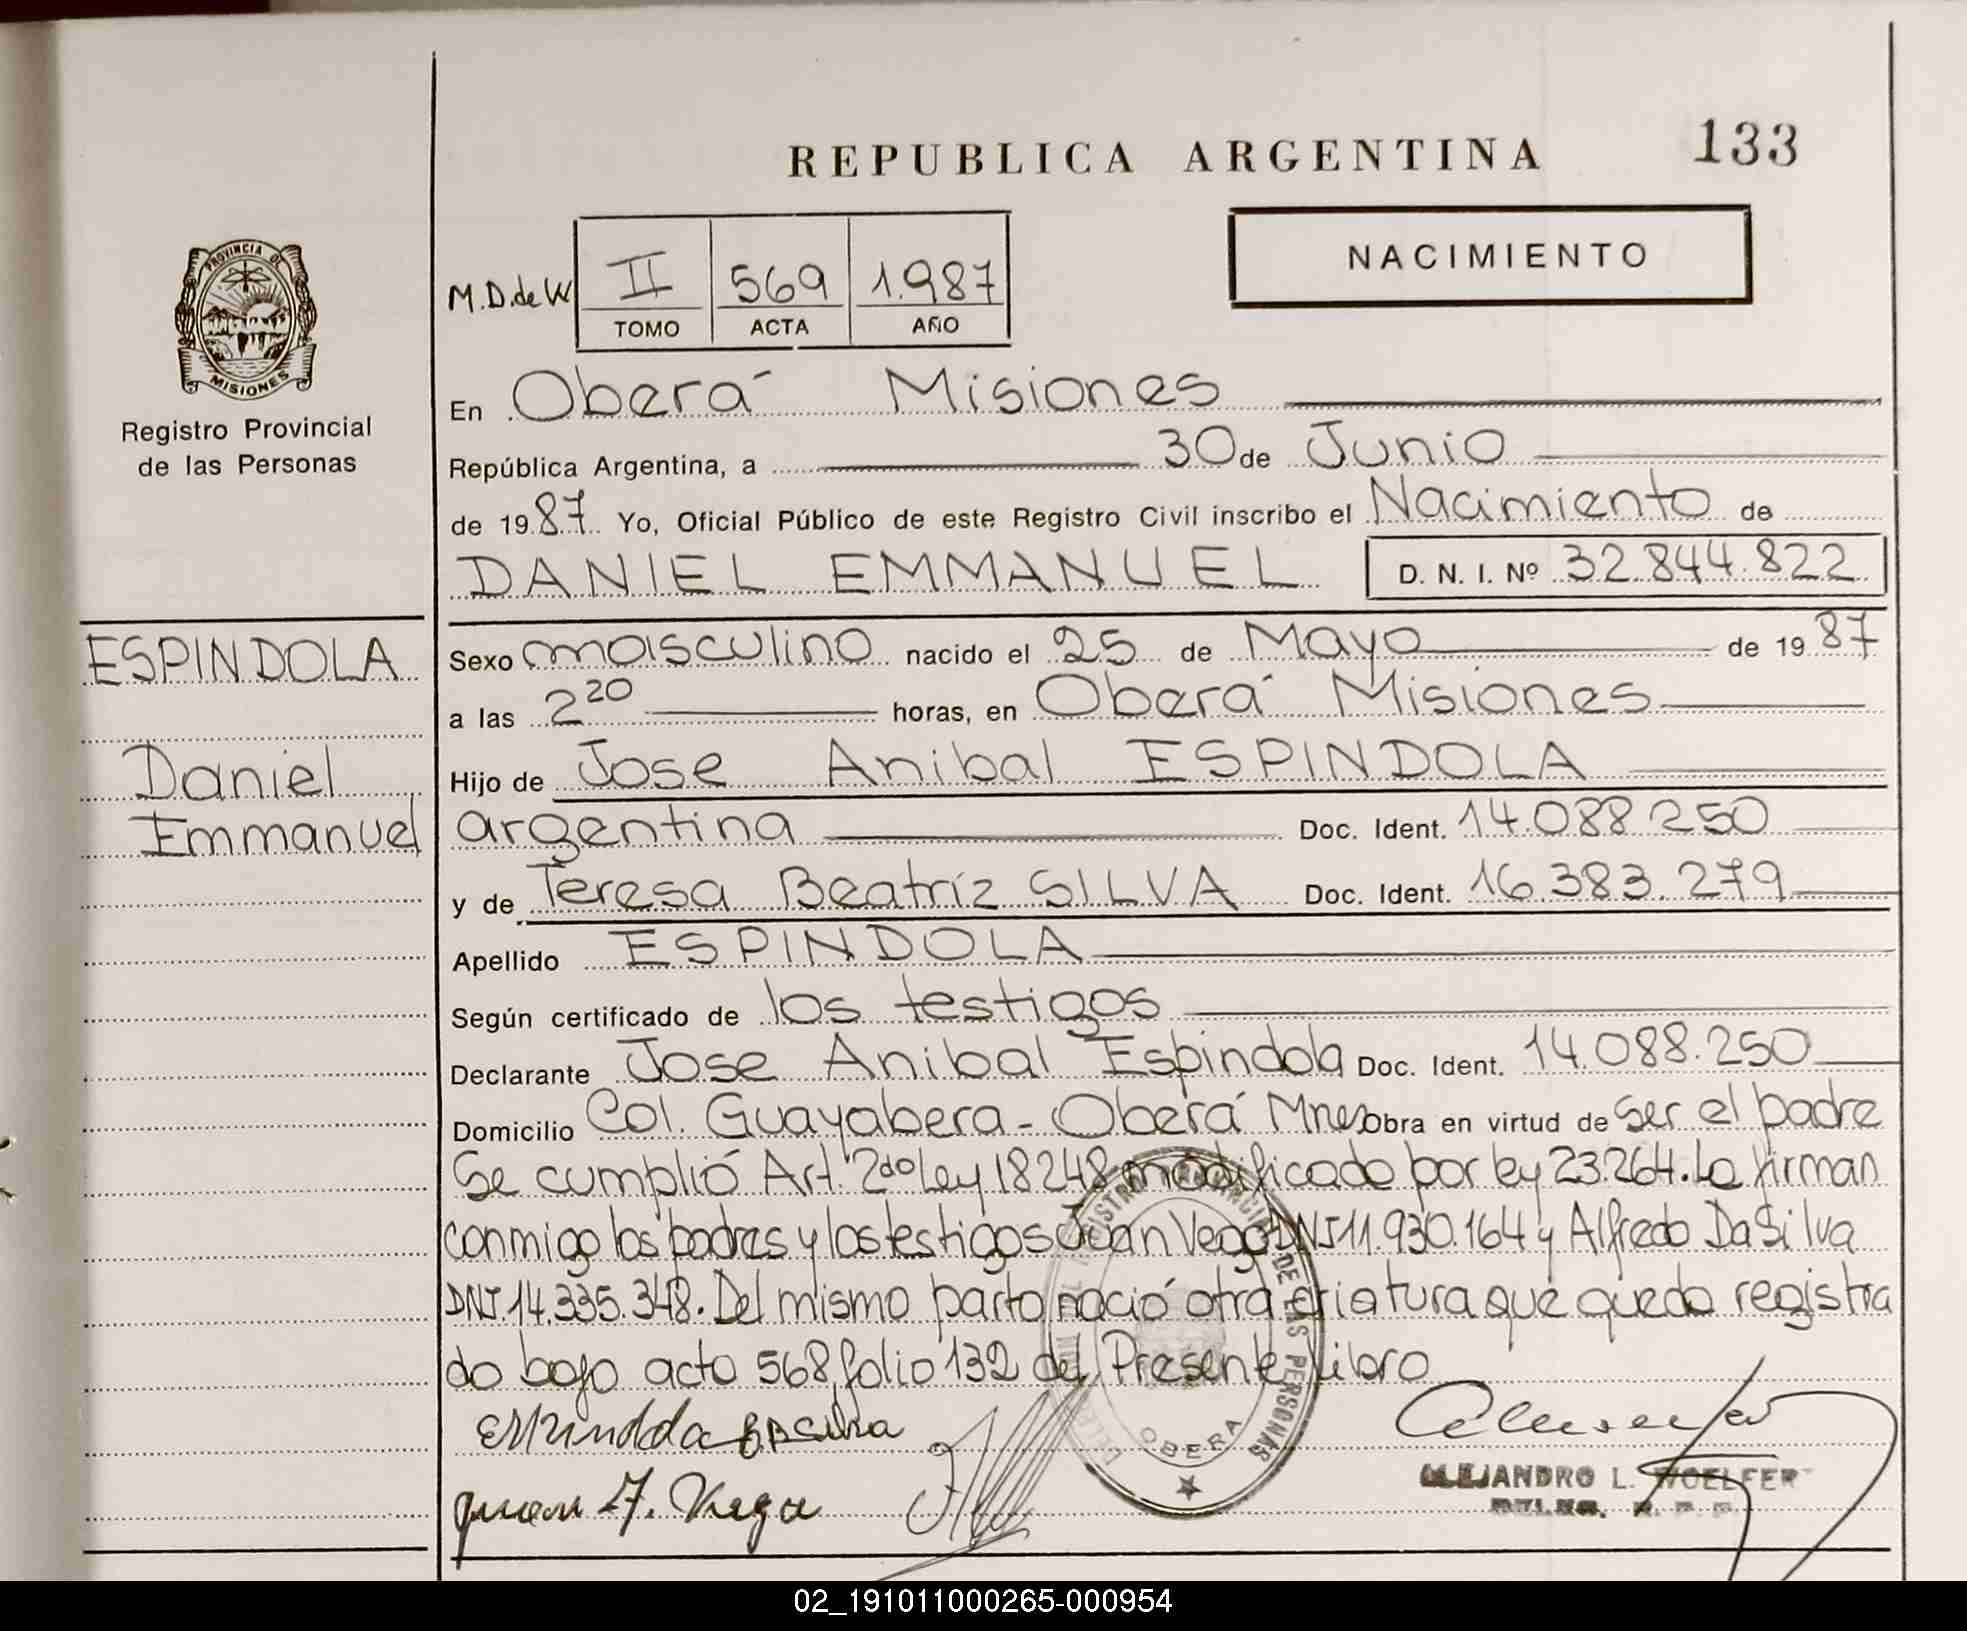 REPUBLICA ARGENTINA 133
NACIMIENTO
M.D.de W II 569 1.987
TOMO ACTA AÑO
PROVINCIA DE
MISIONES
Registro Provincial
de las Personas
En Oberá Misiones
República Argentina, a 30 de Junio
de 1987 Yo, Oficial Público de este Registro Civil inscribo el Nacimiento de
DANIEL EMMANUEL D. N. I. Nº 32.844.822
ESPINDOLA
Daniel
Emmanuel
Sexo masculino nacido el 25 de Mayo de 1987
a las 2 20 horas, en Oberá Misiones
Hijo de Jose Anibal ESPINDOLA
argentina Doc. Ident. 14.088.250
y de Teresa Beatríz SILVA Doc. Ident. 16.383.279
Apellido ESPINDOLA
Según certificado de los testigos
Declarante Jose Anibal Espindola Doc. Ident. 14.088.250
Domicilio Col. Guayabera - Oberá Mnes Obra en virtud de ser el padre
Se cumplió Art. 2do Ley 18248 modificado por ley 23.264. La firman
conmigo los padres y los testigos Juan Vega DNI 11.930.164 y Alfredo Da Silva
DNI 14.335.348. Del mismo parto nació otra criatura que queda registra
do bajo acta 568 folio 132 del Presente Libro
REGISTRO PROVINCIAL DE LAS PERSONAS
OBERA
Juan F. Vega
ALEJANDRO L. WOELFERT
02_191011000265-000954